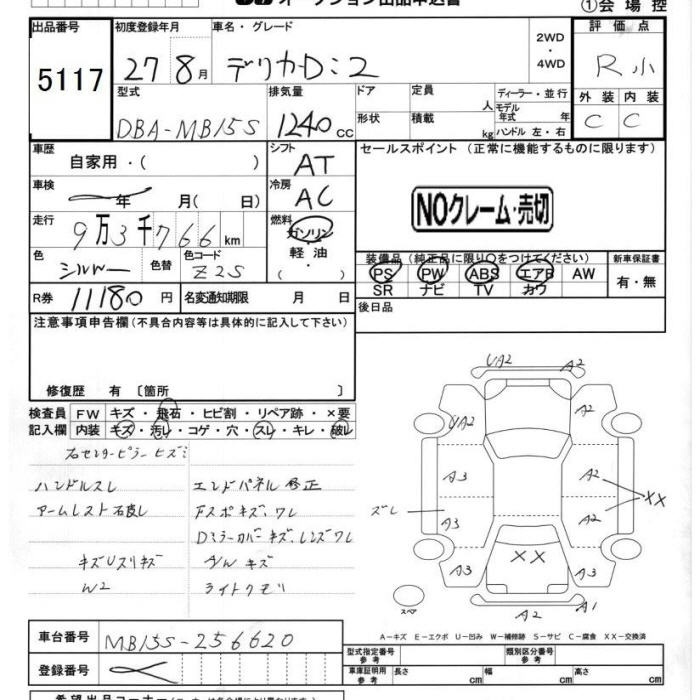 オークション出品申込書
①会場控
出品番号 5117
初度登録年月 27 8月
車名・グレード デリカD:2
2WD・4WD
評価点 R小
型式 DBA-MB15S
排気量 1240cc
ドア 形状
定員 人
積載 kg
ディーラー・並行
モデル年式 年
ハンドル 左・右
外装 C 内装 C
車歴 自家用・( )
シフト AT
セールスポイント (正常に機能するものに限ります)
車検 年 月( 日)
冷房 AC
NOクレーム・売切
走行 9万3千766km
燃料 ガソリン・軽油・( )
色 シルバー 色替 色コード Z2S
装備品 (純正品に限り○をつけてください)
PS PW ABS エアB AW
SR ナビ TV カワ
新車保証書 有・無
R券 11180円
名変通知期限 月 日
後日品
注意事項申告欄(不具合内容等は具体的に記入して下さい)
修復歴 有 〔箇所 〕
検査員記入欄
FW キズ・飛石・ヒビ割・リペア跡・×要
内装 キズ・汚レ・コゲ・穴・スレ・キレ・破レ
右センターピラーヒズミ
ハンドルスレ エンドパネル修正
アームレスト右良し Fスポキズ、ワレ
Dミラーカバーキズ、レンズワレ
キズUスリキズ
W2 ライトクモリ
UA2 A2
UA2 A2
A3 A2
XX
ズレ A3 A2
XX
A3 A3
A2 A1
スペア
A-キズ E-エクボ U-凹み W-補修跡 S-サビ C-腐食 XX-交換済
車台番号 MB15S-256620
登録番号
型式指定番号 参考
類別区分番号 参考
車庫証明用 参考 長さ cm 幅 cm 高さ cm
希望出品コーナー